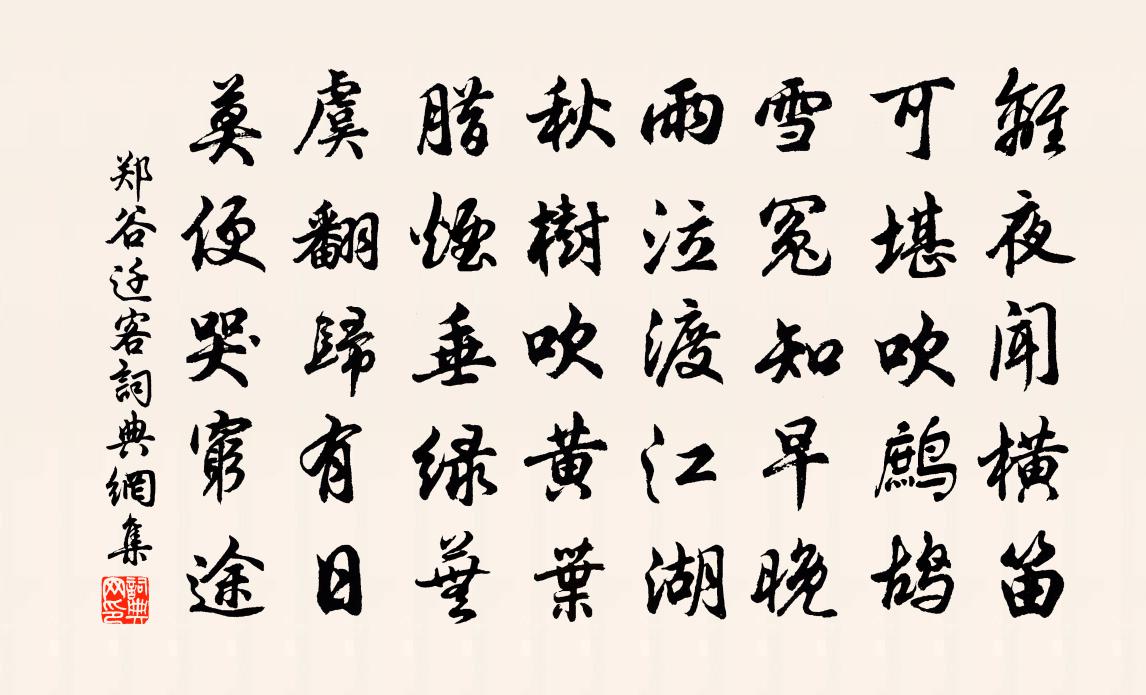 離夜聞横笛
可堪吹鷓鴣
雪冤知早晚
雨泣渡江湖
秋樹吹黄葉
腊煙垂緑蕪
虞翻歸有日
莫便哭窮途
郑谷迁客詞典網集
詞典网印